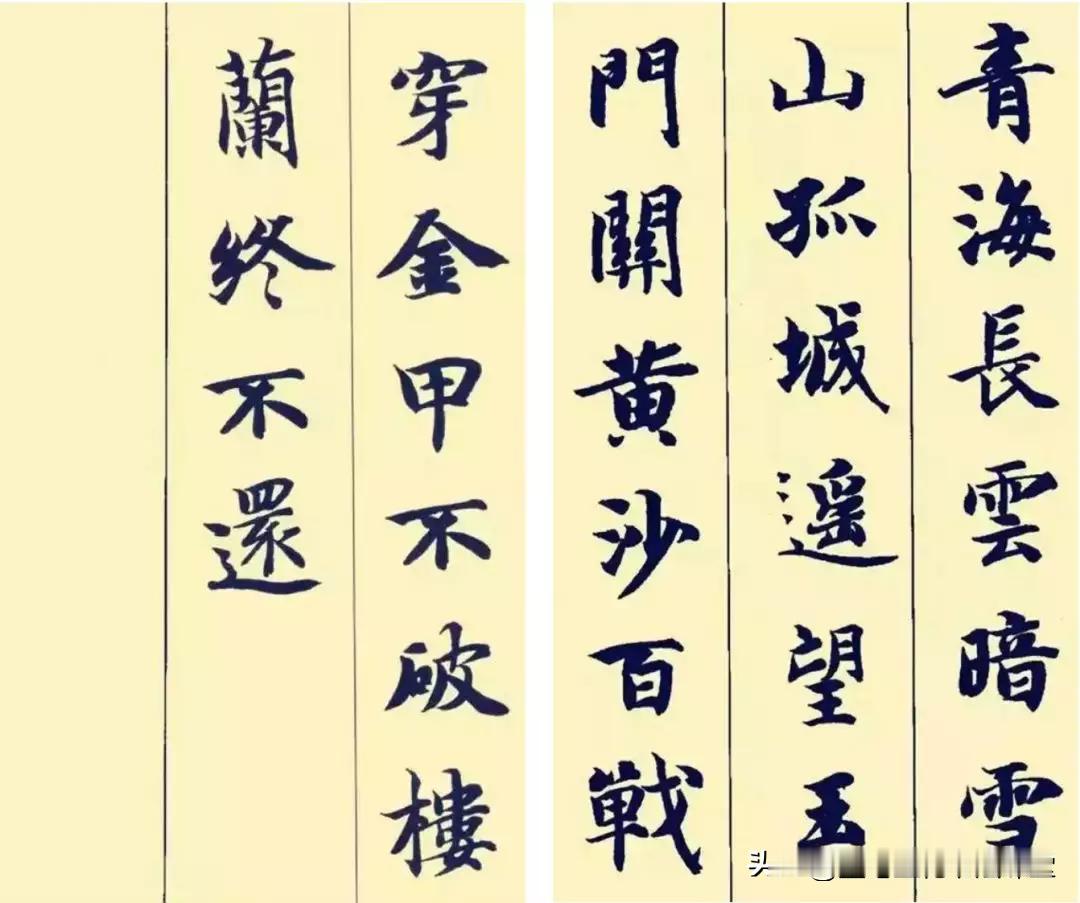 青海長雲暗雪
山孤城遥望玉
門關黄沙百戰
穿金甲不破樓
蘭終不還
头